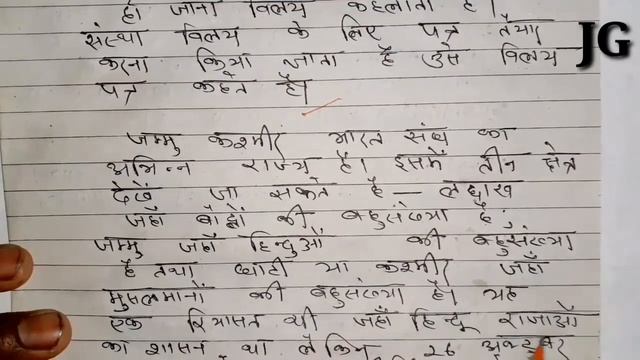 हो जाना विलय कहलाता है।
संस्था विलय के लिए पत्र तैयार
करना किया जाता है उसे विलय
पत्र कहते है।
जम्मु कश्मीर भारत संघ का
अभिन्न राज्य है। इसमें तीन क्षेत्र
देखें जा सकते है — लद्दाख
जहाँ बौद्धों की बहुसंख्या है;
जम्मु जहाँ हिन्दुओं की बहुसंख्या
है तथा घाटी या कश्मीर जहाँ
मुसलमानों की बहुसंख्या है। यह
एक रियासत थी जहाँ हिन्दू राजाओं
का शासन था लेकिन 26 अक्टूबर
JG